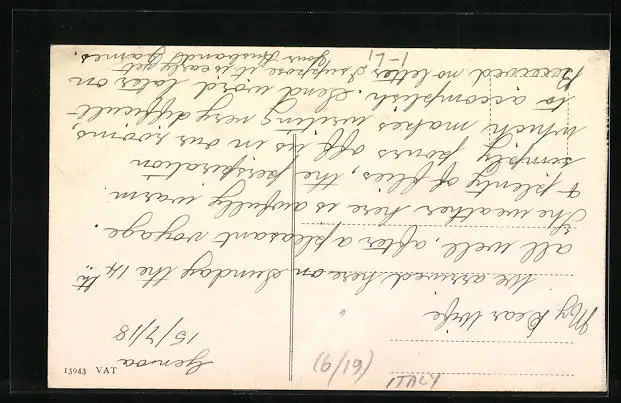 Genoa
15/7/18
My Dear Wife
We arrived here on Sunday the 14th
all well, after a pleasant voyage.
The weather here is awfully warm
& plenty of flies, the perspiration
simply pours off us in our rooms,
which makes writing very difficult
to accomplish. Send word later on
Received no letter, I suppose it is early yet
Your Husband James.
1-L1
13943 VAT
(61/9)
ITALY